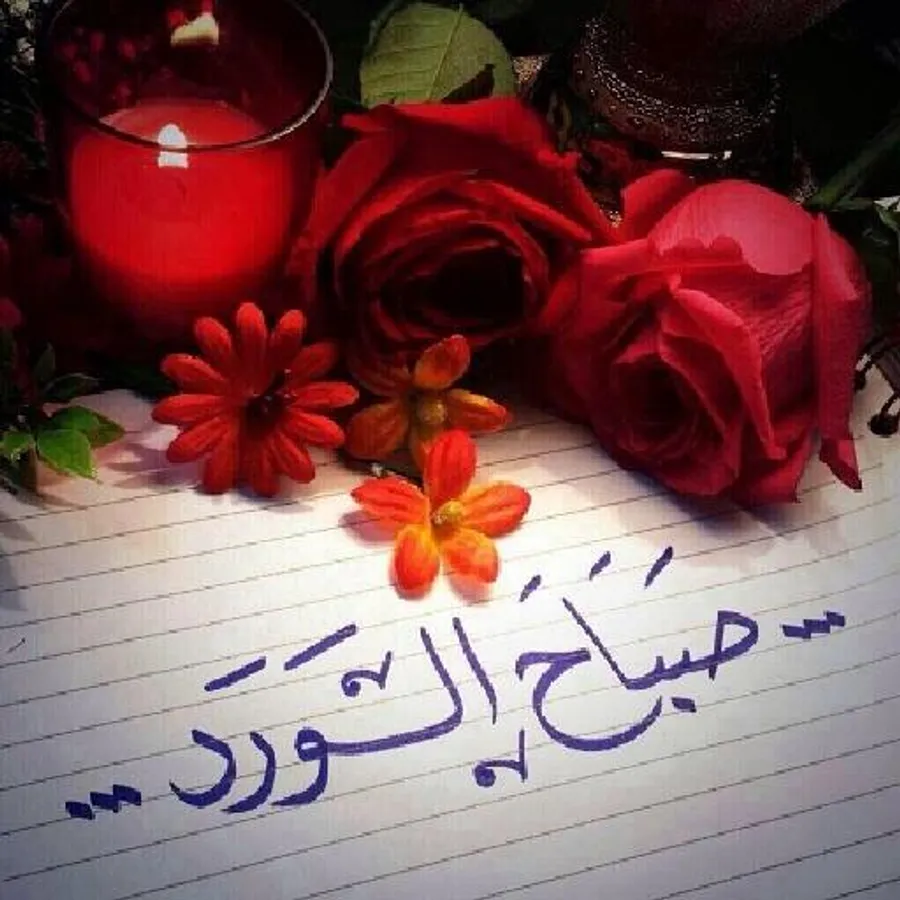 ... صَبَاحُ الْوَرَد ...